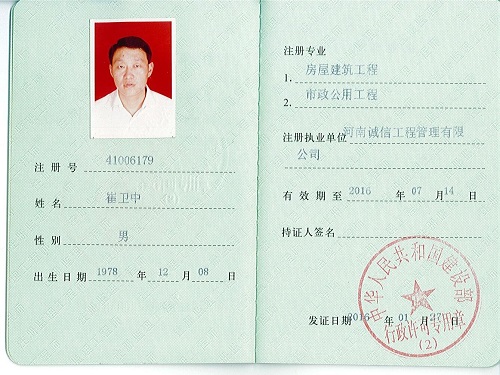 注册号 41006179
姓名 崔卫中
性别 男
出生日期 1978 年 12 月 08 日
注册专业
1. 房屋建筑工程
2. 市政公用工程
注册执业单位 河南诚信工程管理有限
公司
有效期至 2016 年 07 月 14 日
持证人签名
中华人民共和国建设部
行政许可专用章
(2)
发证日期 2016 年 01 月 27 日